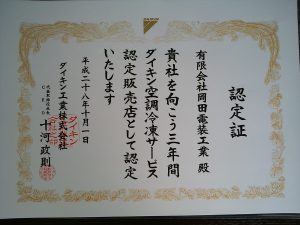 認定証
有限会社岡田電装工業 殿
貴社を向こう三年間
ダイキン空調冷凍サービス
認定販売店として認定
いたします
平成二十八年十月一日
ダイキン工業株式会社
十河政則